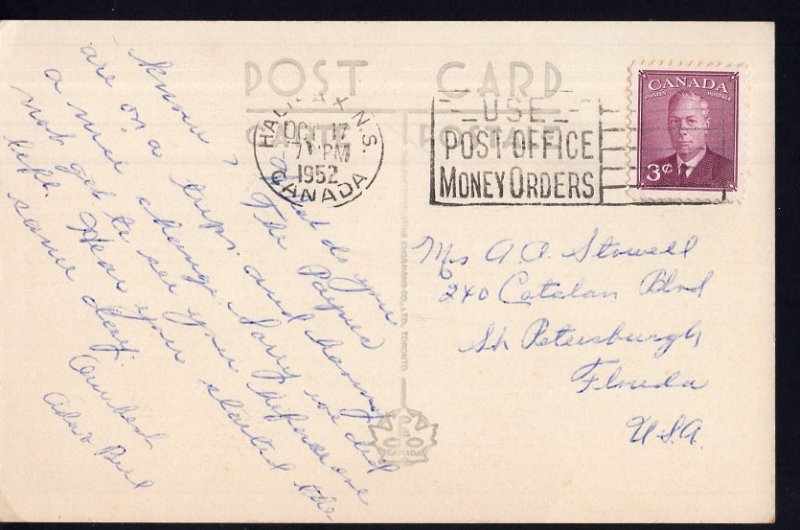 POST CARD
HALIFAX N.S.
OCT 17
7 PM
1952
CANADA
USE
POST OFFICE
MONEY ORDERS
CANADA
POSTES POSTAGE
3¢
What do you
know? The Paynes
are on a trip and
a nice change. Sorry we did
not get to see you before we
left. Hear you started the
same day.
Our best
Ada & Bill
Mrs A. A. Stowell
240 Catalan Blvd
St Petersburgh
Florida
U.S.A.